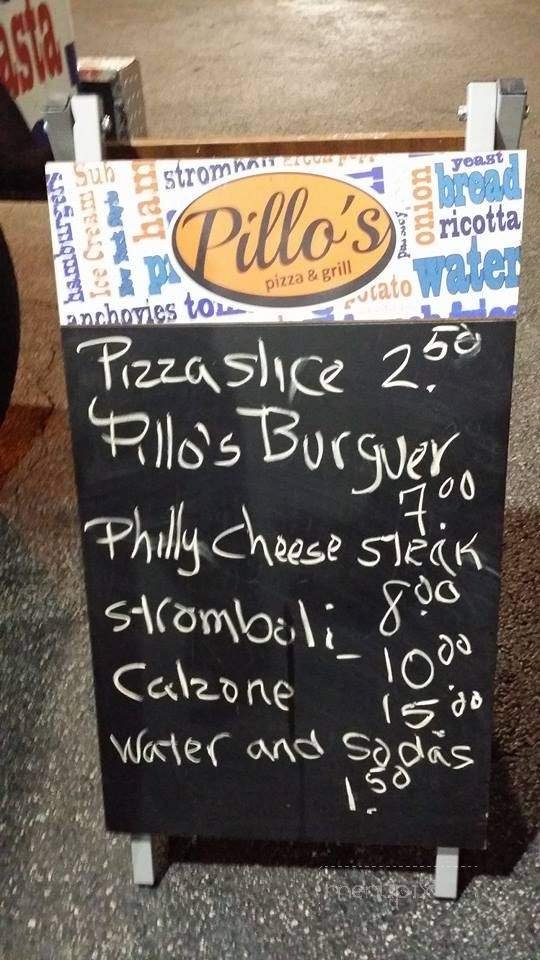 asta
hamburgers
Ice Cream Sub
ham
stromboli
yeast
bread
onion
ricotta
water
potato
anchovies
Pillo's
pizza & grill
Pizza slice 2.50
Pillo's Burguer
7.00
Philly Cheese steak
8.00
stromboli_
10.00
Calzone
15.00
water and Sodas
1.50
menupix